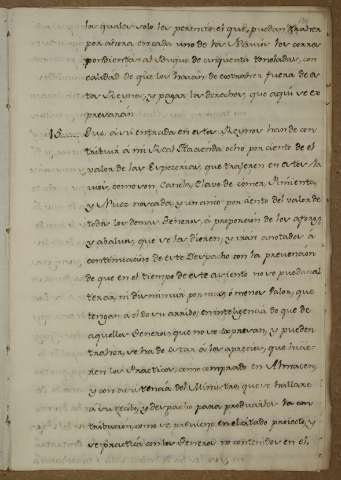 las quales solo les permito el que puedan traher
por ahora en cada uno de los Navios los corres
pondientes al buque de cinquenta toneladas, con
calidad de que los hayan de extraher fuera de es
tos Reynos, y pagar los derechos, que aqui se ex
presaran
15. Que a su entrada en estos Reynos han de con
tribuir a mi Real Hacienda ocho por ciento de el
valor de las Especerias, que trageren en estos Na
vios, como son, Canela, Clavo de comer, Pimienta,
y Nuez noscada, y un cinco por ciento del valor de
todos los demas Generos, a proporcion de los aforos,
y abaluos, que se les dieren, y iran anotados a
continuacion de este Despacho con la prevencion
de que en el tiempo de este asiento no se puedan al
terar, ni disminuir por mas, ó menos valor, que
tengan a el de su arribo, en inteligencia de que de
aquellos Generos, que no se expresan, y pueden
traher, se ha de estar á los aprecios, que hicie
ren los Practicos, como comprado en Almacen,
y con asistencia del Ministro, que se hallare
a su recibo, y despacho para producirles la con
tribucion, como se previene en el citado proiecto, y
se practica con los Generos no contenidos en el,